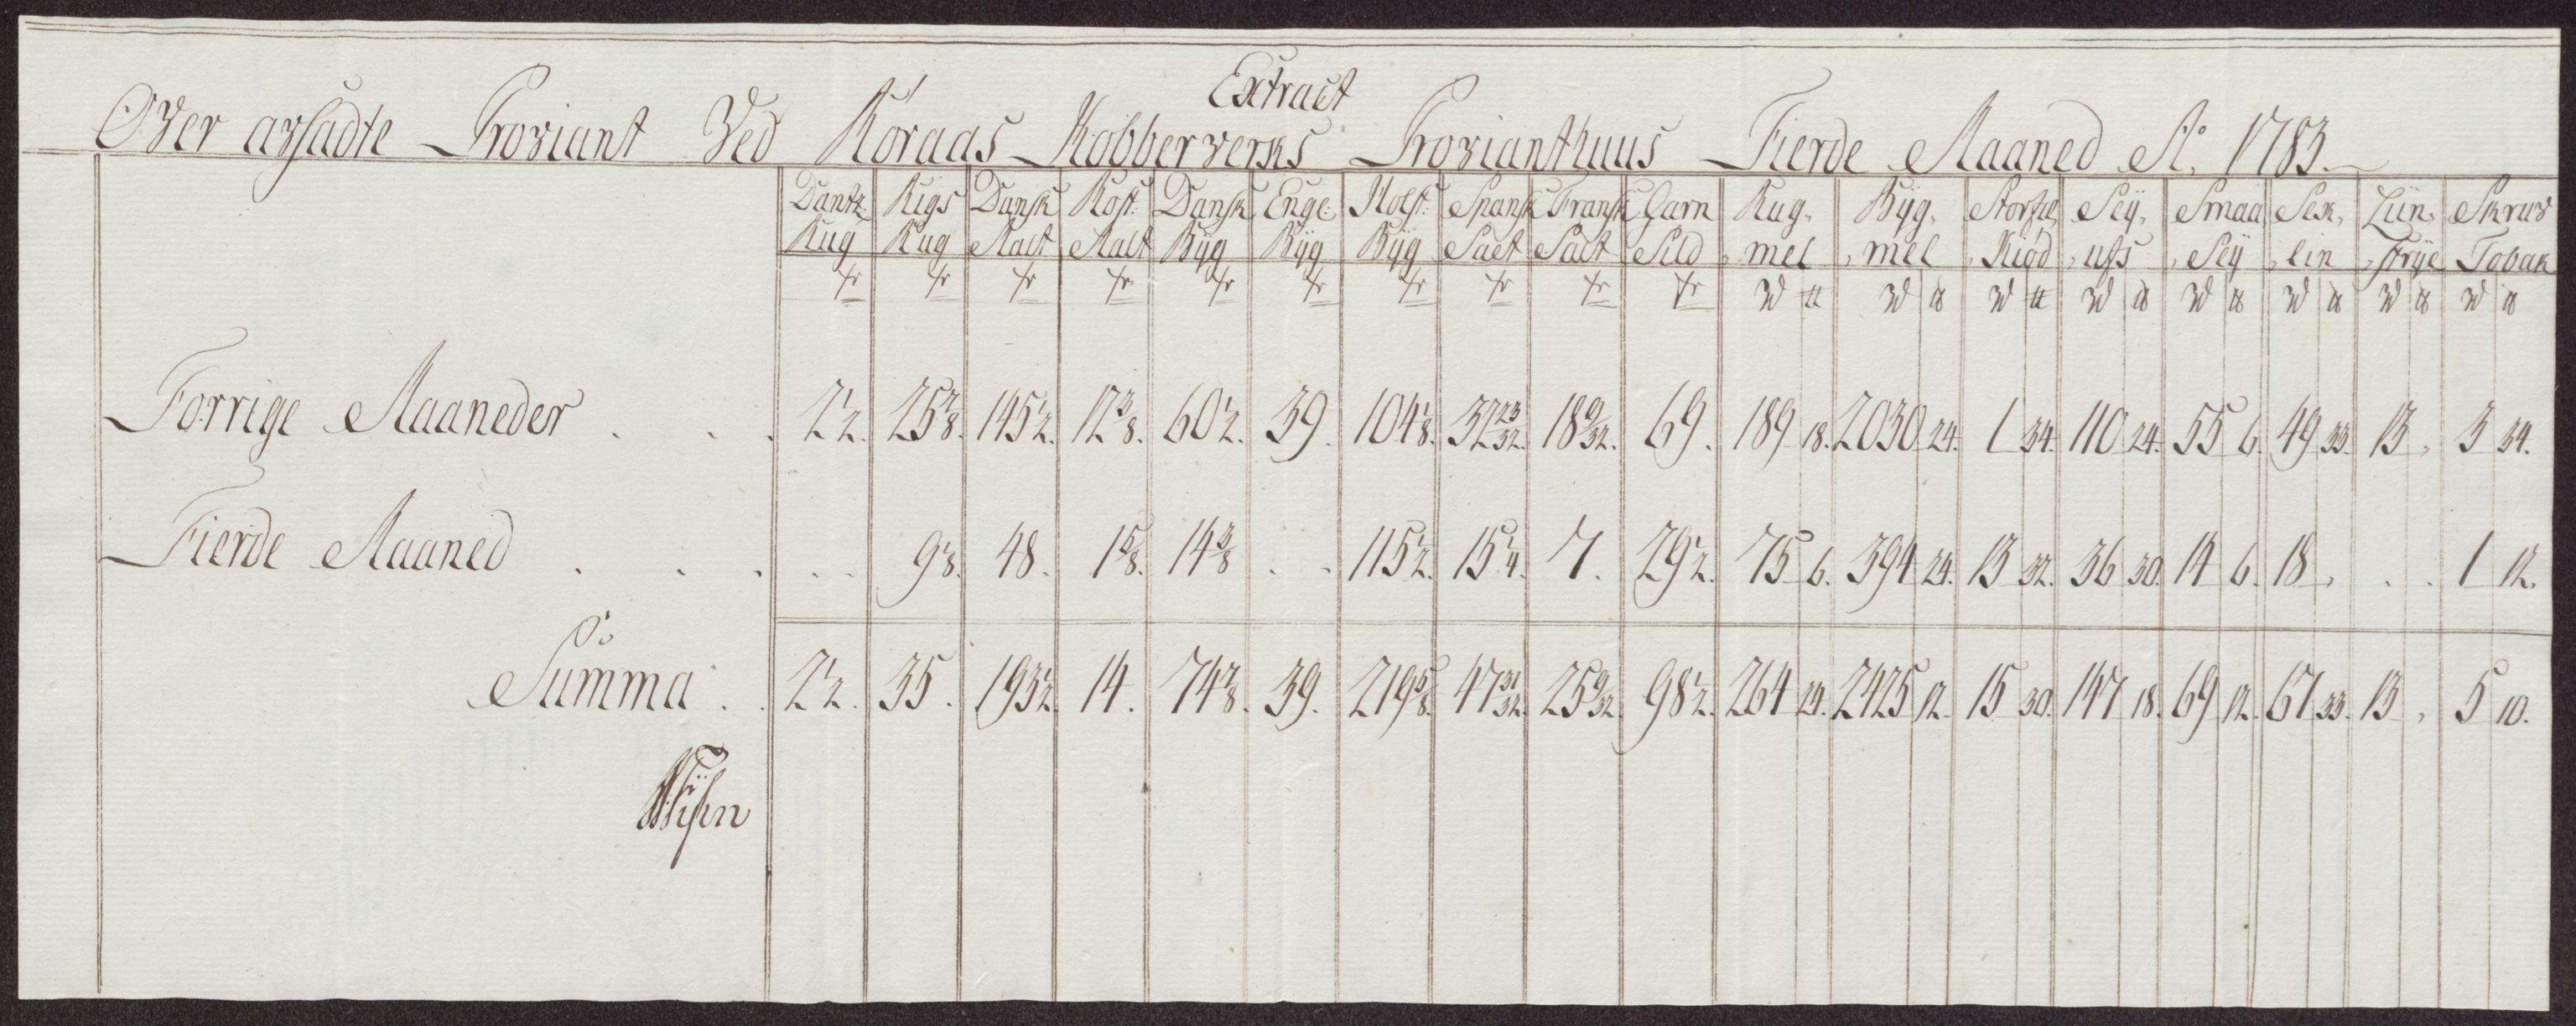 Extract
Over afsadte Proviant Ved Röraas Kobberverks Provianthuus Fierde Maaned Aº 1783.
Dantz: Rug | Rigs Rug | Dansk Malt | Rost: Malt | Dansk Byg | Enge: Byg | Holst: Byg | Spansk Salt | Fransk Salt | Garn Sild | Rug, mel | Byg, mel | Kiöd | Sey, ufs | Smaa Sey | Sek, lin | Skruv Tobak
Forrige Maaneder . . . 2 1/2. | 25 7/8. | 145 1/2. | 12 3/8. | 60 1/2. | 39. | 104 1/8. | 32 23/32. | 18 9/32. | 69. | 189 18. | 2030 24. | 1 34. | 110 24. | 55 6. | 49 33. | 13 , | 3 34.
Fierde Maaned . . . . . | 9 1/8. | 48. | 1 5/8. | 14 3/8 | . . | 115 1/2. | 15 1/4. | 7. | 29 1/2. | 75 6. | 394 24. | 13 32. | 36 30. | 14 6. | 18 , | . . | 1 12.
Summa . . 2 1/2. | 35. | 193 1/2. | 14. | 74 7/8. | 39. | 219 5/8. | 47 31/32. | 25 9/32 | 98 1/2. | 264 24. | 2425 12. | 15 30. | 147 18. | 69 12. | 67 33. | 13 , | 5 10.